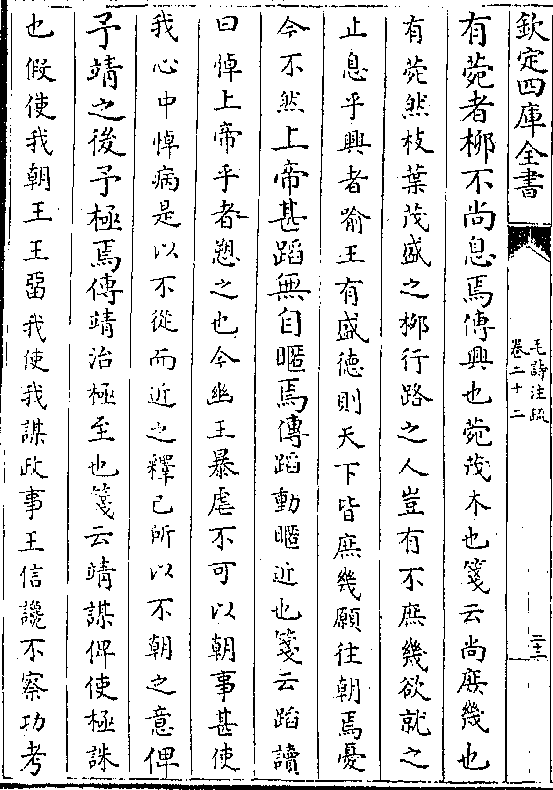 欽定四庫全書
毛詩注疏
卷二十二
二十二
有菀者柳不尚息焉傳興也菀茂木也箋云尚庶幾也
有菀然枝葉茂盛之栁行路之人豈有不庶幾欲就之
止息乎興者喻王有盛德則天下皆庶幾願往朝焉憂
今不然上帝甚蹈無自暱焉傳蹈動暱近也箋云蹈讀
曰悼上帝乎者愬之也今幽王暴虐不可以朝事甚使
我心中悼病是以不從而近之釋已所以不朝之意俾
予靖之後予極焉傳靖治極至也箋云靖謀俾使極誅
也假使我朝王王留我使我謀政事王信讒不察功考